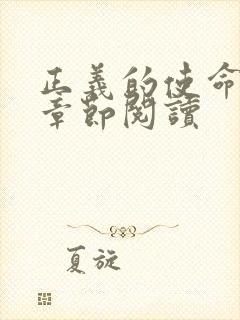 正義的使命
章節閱讀
夏旋